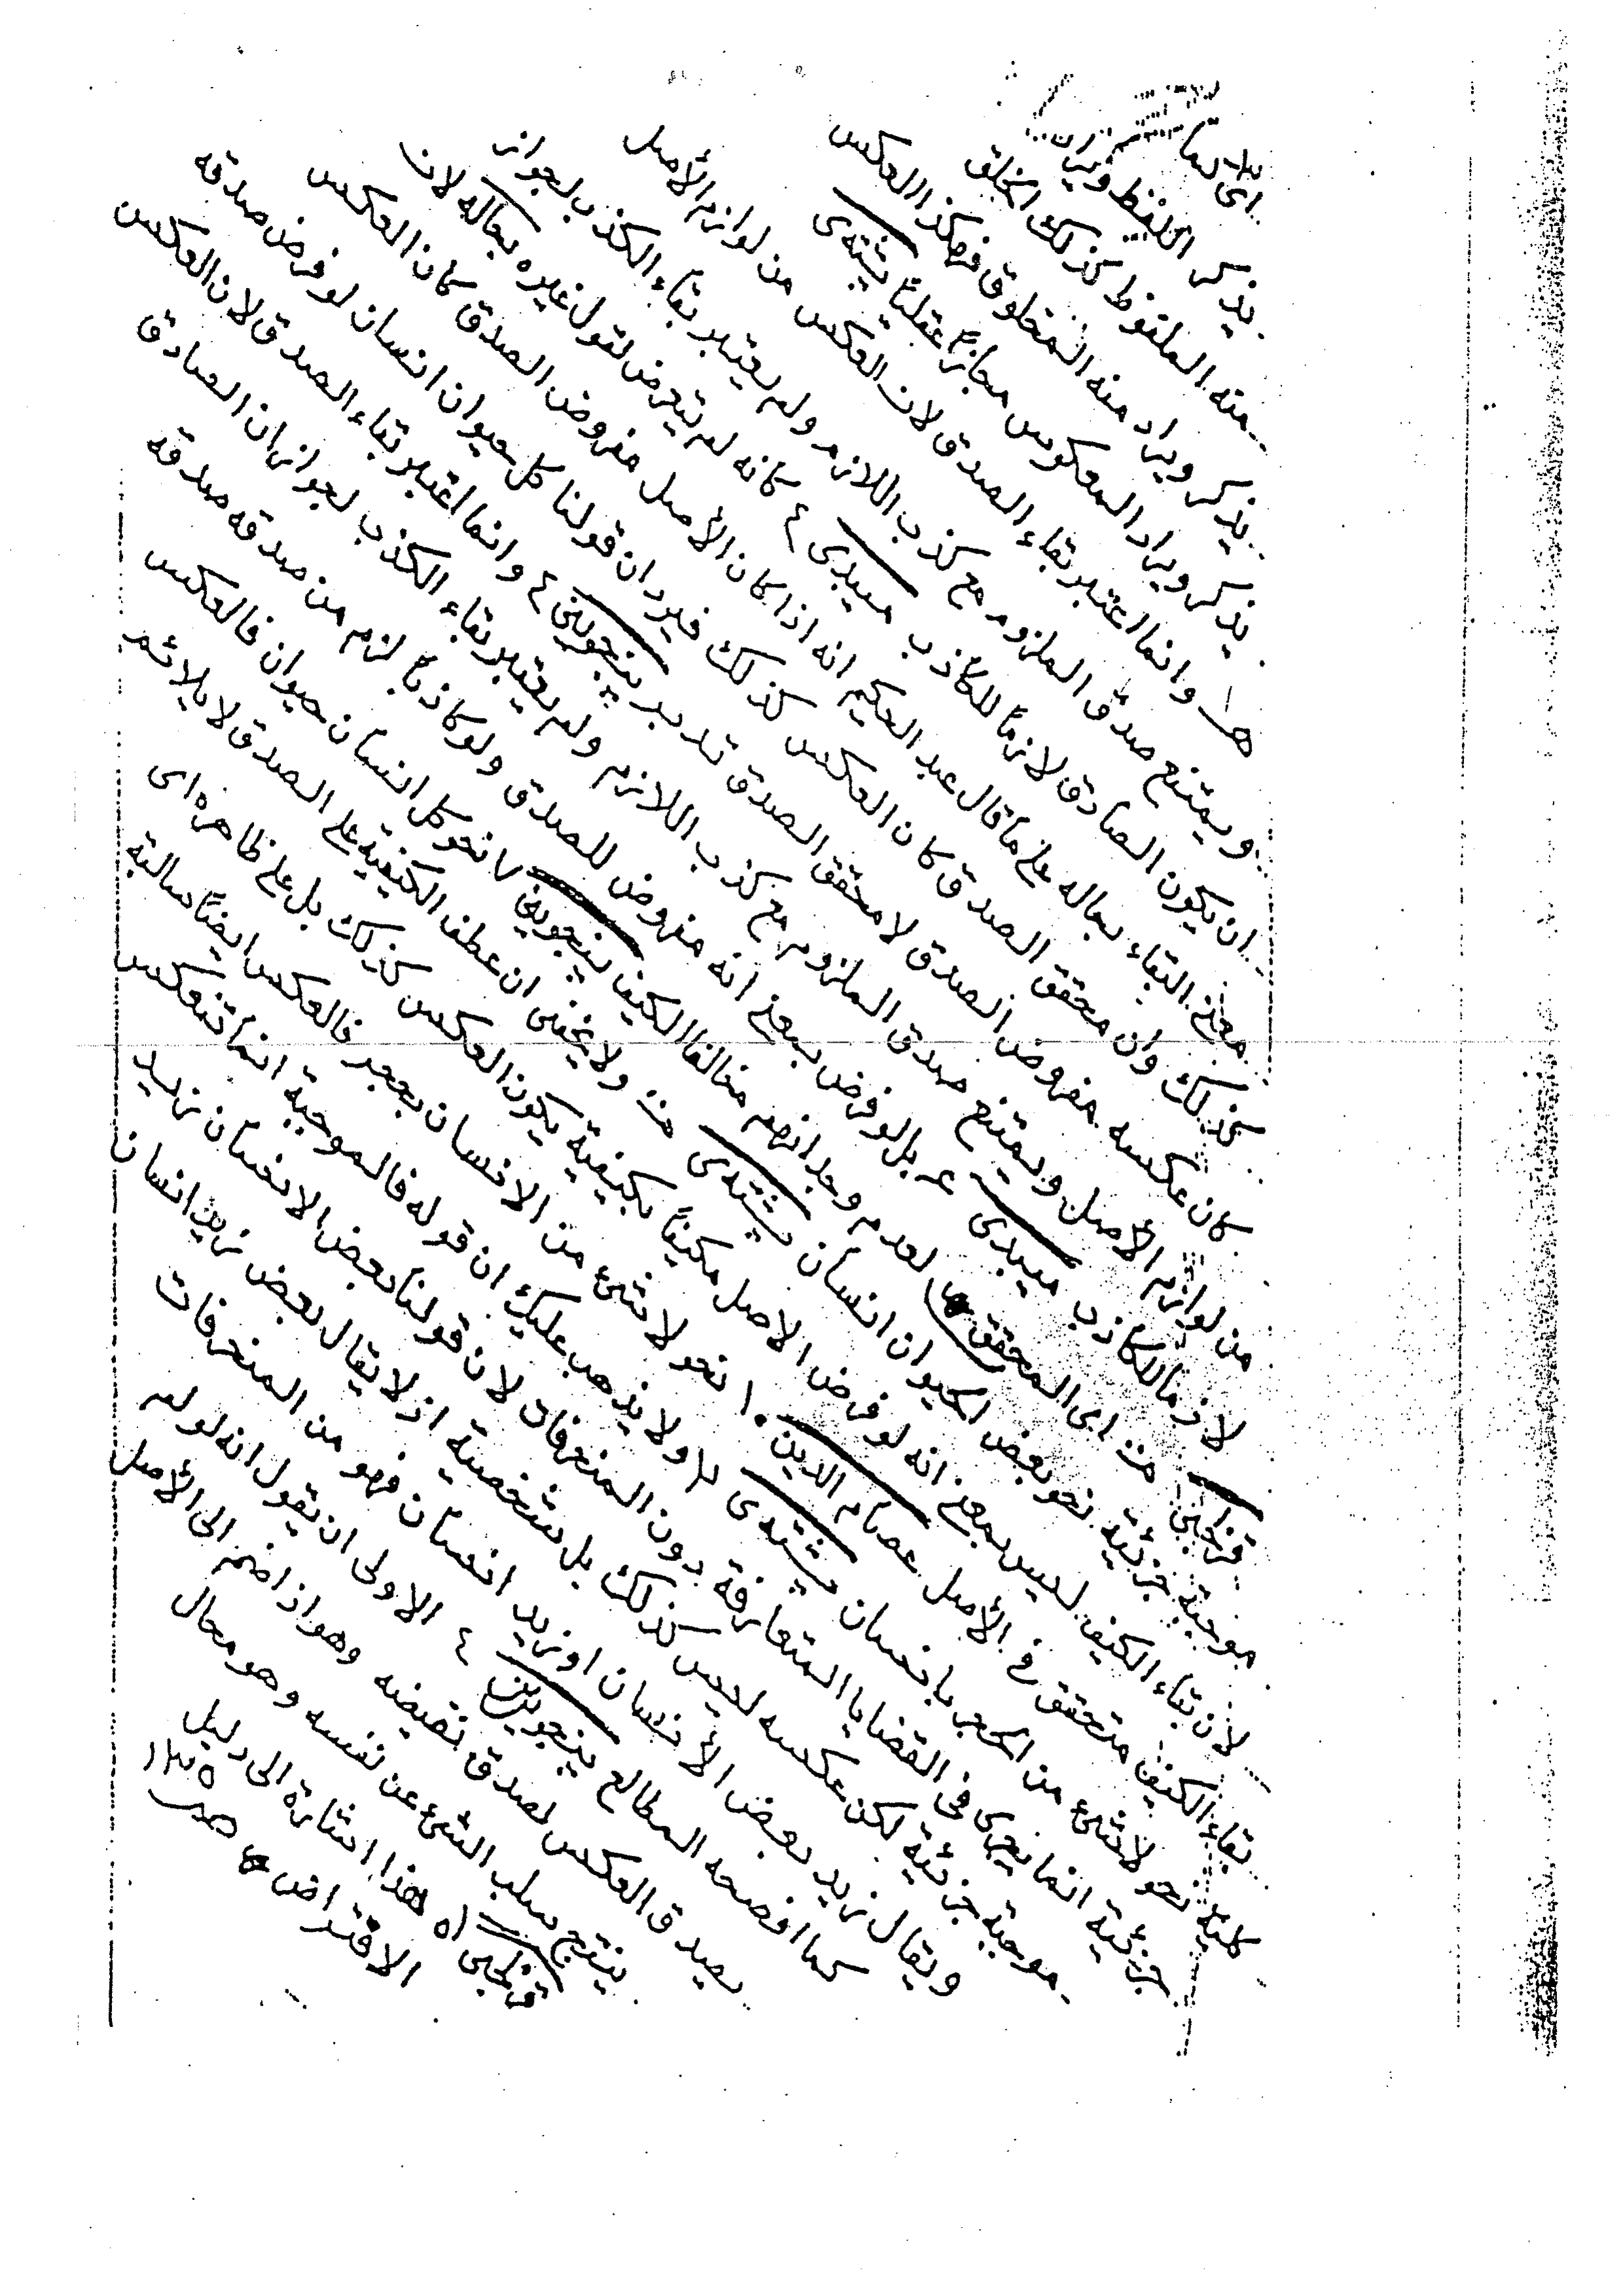 يذكر اللفظ ويراد
منه الملفوظ كذلك الخلق
يذكر ويراد منه المخلوق فهكذا العكس
يذكر ويراد المعكوس مجازًا عقليًا
وانما اعتبر بقاء الصدق لان العكس من لوازم الأصل
ويمتنع صدق الملزوم مع كذب اللازم ولم يعتبر بقاء الكذب لجواز
ان يكون الصادق لازمًا للكاذب ميبدى ٤ كانه لم يتعرض لقول غيره بحاله لان
معنى البقاء بحاله على ما قال عبد الحكيم انه اذا كان الأصل مفروض الصدق كان العكس
كذلك وان محقق الصدق كان العكس كذلك فيرد ان قولنا كل حيوان انسان لو فرض صدقه
كان عكسه مفروض الصدق لا محقق الصدق تدبر پنجوينى ٤ وانما اعتبر بقاء الصدق لان العكس
من لوازم الأصل ويمتنع صدق الملزوم مع كذب اللازم ولم يعتبر بقاء الكذب لجواز ان الصادق
لازما للكاذب ميبدى بل لو فرض بمعنى انه مفروض للصدق ولو كاذبًا لزم من صدقه صدقه
قزلجى منه اى المحقق لعدم وجدانهم مخالفا الكيف پنجوينى نحو كل انسان حيوان فالعكس
موجبة جزئية نحو بعض الحيوان انسان منه ولا يخفى ان عطف الكيفية على الصدق لا يلائم
لان بقاء الكيف ليس بمعنى انه لو فرض الاصل مكيفًا بكيفية يكون العكس كذلك بل على ظاهره اى
بقاء الكيف متحقق فى الأصل عصام الدين ١٠ نحو لا شئ من الانسان بحجر فالعكس ايضًا سالبة
كلية نحو لا شئ من الحجر بانسان ولا يذهب عليك ان قوله فالموجبة انما تنعكس
جزئية انما يجرى فى القضايا المتعارفة دون المنحرفات لان قولنا بعض الانسان زيد
موجبة جزئية لكن عكسه ليس كذلك بل شخصية اذ لا يقال بعض زيد انسان
ويقال زيد بعض الأنسان او زيد انسان فهو من المنحرفات
كما افصحه المطالع پنجوينى ٤ الاولى ان يقول انه لو لم
يصدق العكس لصدق نقيضه وهو اذا ضم الى الأصل
ينتج سلب الشئ عن نفسه وهو محال
قزلجى هذا اشارة الى دليل
الافتراض